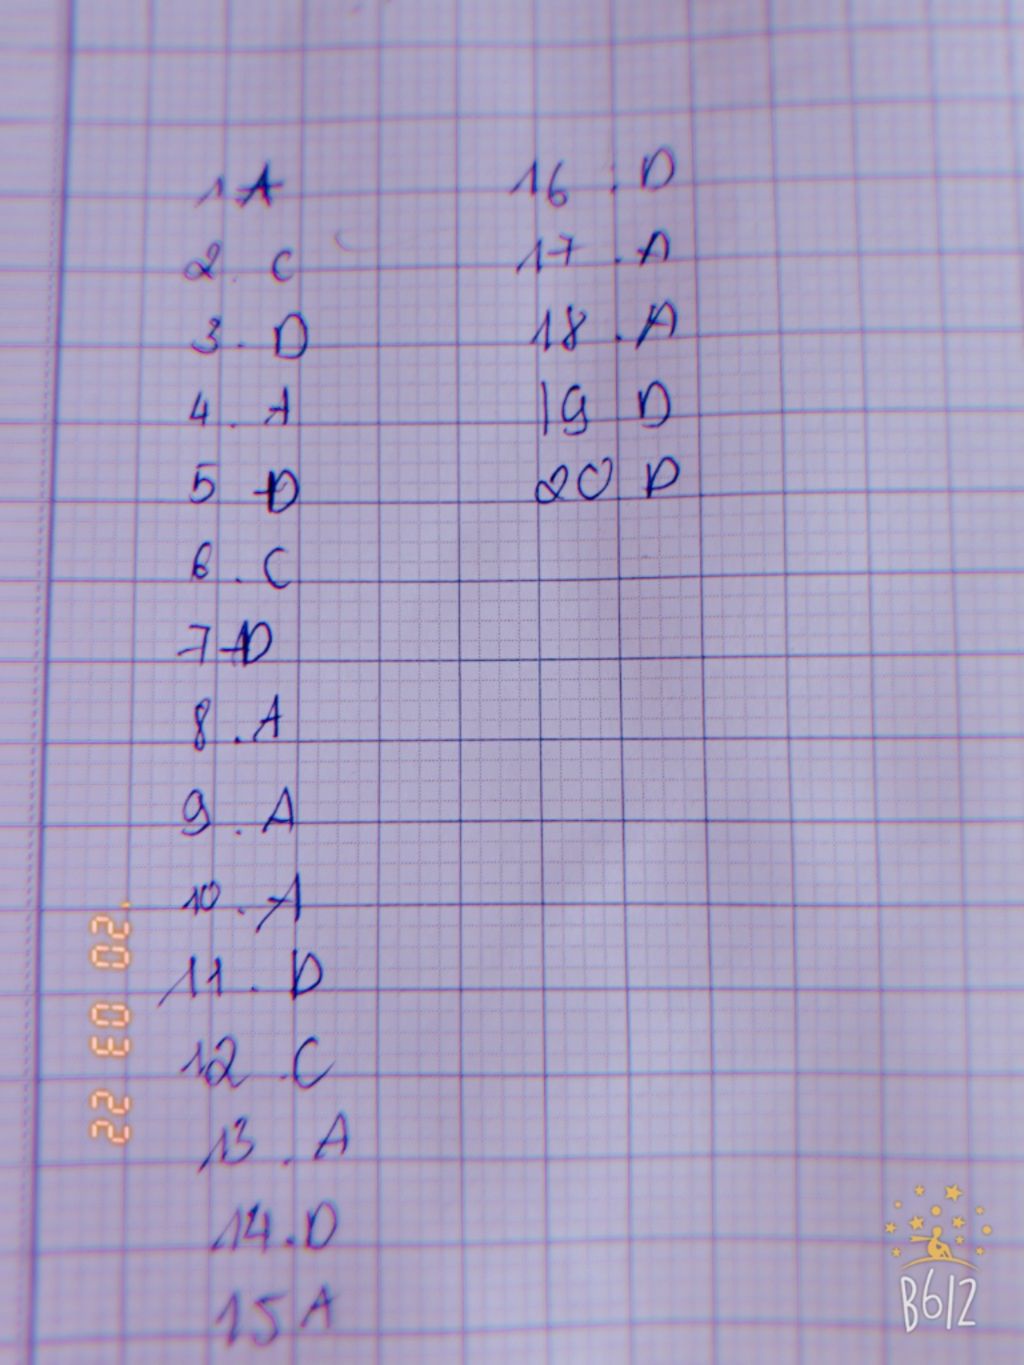 1 A
2. C
3. D
4. A
5 D
6. C
7 D
8. A
9. A
10. A
11. D
12. C
13. A
14. D
15 A
16 : D
17. A
18. A
19 D
20 D
20 03 22
B612